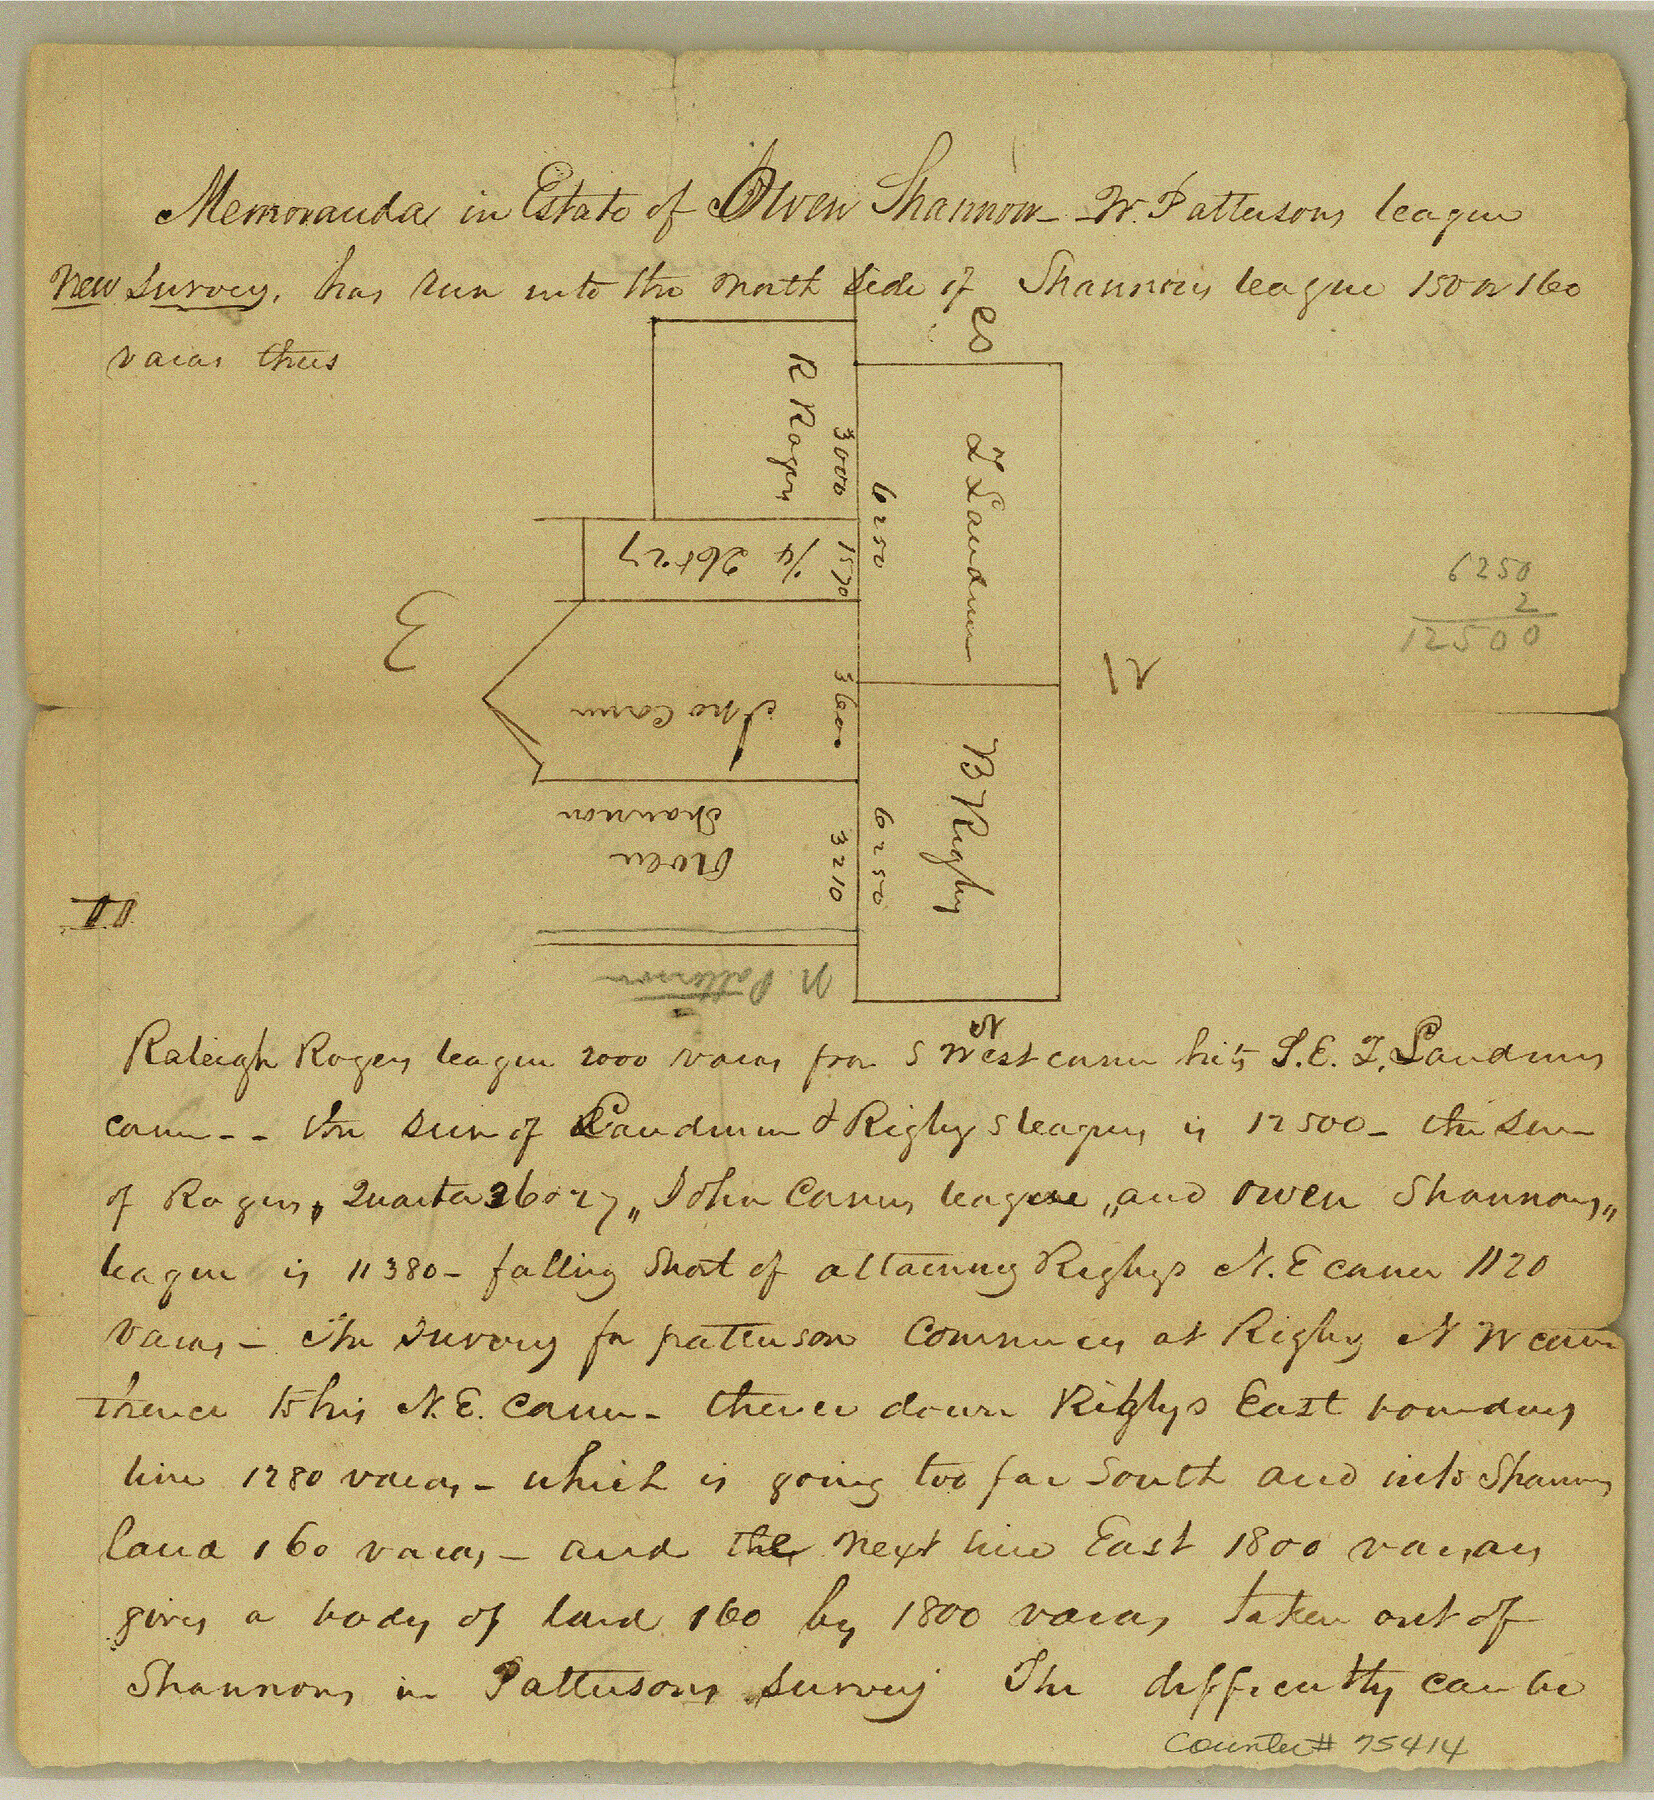 Memoranda in Estate of Owen Shannon - W. Pattersons league
New Survey, has run into the North side of Shannons league 150 or 160
varas thus
S
R Rogers
3000
6250
T Landrum
1/4 26 & 27
1570
E
Jno Corner
3600
W
6250
2
12500
B Rigby
6250
Owen
Shannon
3210
N. Patterson
N
Raleigh Rogers league 2000 varas from S West corner hits S.E. Z. Landrums
corner -- the sum of Landrum & Rigbys leagues is 12500 - the sum
of Rogers, Quarter 26 & 27, John Corners league, and Owen Shannons,
league is 11380 - falling Short of attaining Rigbys N. E corner 1120
Varas - The Survey for patterson Commences at Rigby N W corner
thence to his N. E. Corner - thence down Rigbys East boundary
line 1280 varas - which is going too far South and into Shannons
land 160 varas - and the next line East 1800 varas
gives a body of land 160 by 1800 varas taken out of
Shannons in Pattersons survey The difficulty can be
Counter# 75414